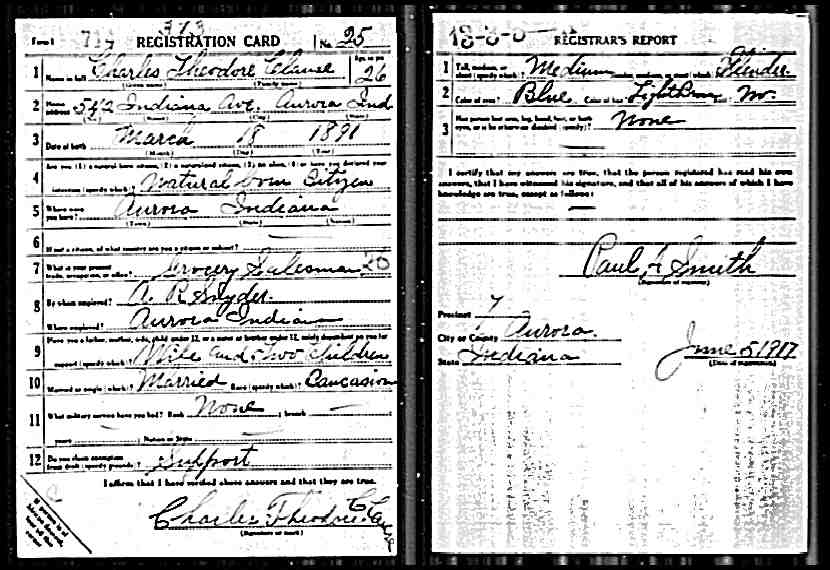 Form 1 REGISTRATION CARD No. 25
1 Name in full Charles Theodore Clause Age, in yrs 26
(Given name) (Family name)
2 Home address 542 Indiana Ave. Aurora Ind
(No.) (City) (State)
3 Date of birth March 18 1891
(Month) (Day) (Year)
4 Are you (1) a natural-born citizen, (2) a naturalized citizen, (3) an alien, (4) or have you declared your
intention (specify which)? Natural born Citizen
5 Where were you born? Aurora Indiana
(Town) (State) (Nation)
6 If not a citizen, of what country are you a citizen or subject?
7 What is your present trade, occupation, or office? Grocery Salesman 20
8 By whom employed? A. R. Snyder.
Where employed? Aurora Indiana
9 Have you a father, mother, wife, child under 12, or a sister or brother under 12, solely dependent on you for
support (specify which)? Wife and two Children
10 Married or single (which)? Married Race (specify which)? Caucasion
11 What military service have you had? Rank None ; branch
years ; Nation or State
12 Do you claim exemption from draft (specify grounds)? Support
I affirm that I have verified above answers and that they are true.
Charles Theodore Clause
(Signature or mark)
REGISTRAR'S REPORT
1 Tall, medium, or short (specify which)? Medium Slender, medium, or stout (which)? Slender
2 Color of eyes? Blue Color of hair? No.
3 Has person lost arm, leg, hand, foot, or both eyes, or is he otherwise disabled (specify)? None
I certify that my answers are true, that the person registered has read his own
answers, that I have witnessed his signature, and that all of his answers of which I have
knowledge are true, except as follows:
Paul F Smith
(Signature of registrar)
Precinct 7
City or County Aurora.
State Indiana
June 5 1917
(Date of registration)